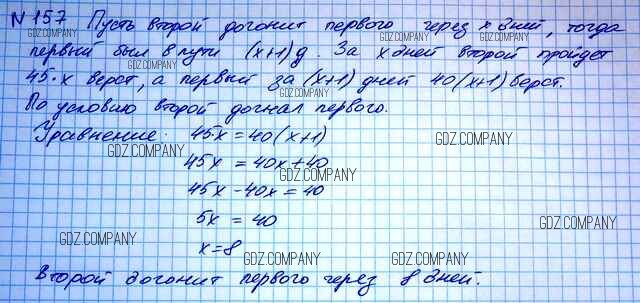 N157 Пусть второй догонит первого через x дней, тогда
GDZ.COMPANY GDZ.COMPANY GDZ.COMPANY
первый был в пути (x+1) д. За x дней второй пройдет
GDZ.COMPANY
45·x верст, а первый за (x+1) дней 40(x+1) верст.
GDZ.COMPANY
По условию второй догнал первого.
Уравнение: 45x = 40(x+1)
GDZ.COMPANY GDZ.COMPANY
45x = 40x+40
GDZ.COMPANY
45x-40x = 40
5x = 40
GDZ.COMPANY GDZ.COMPANY
x=8
GDZ.COMPANY GDZ.COMPANY
Второй догонит первого через 8 дней.